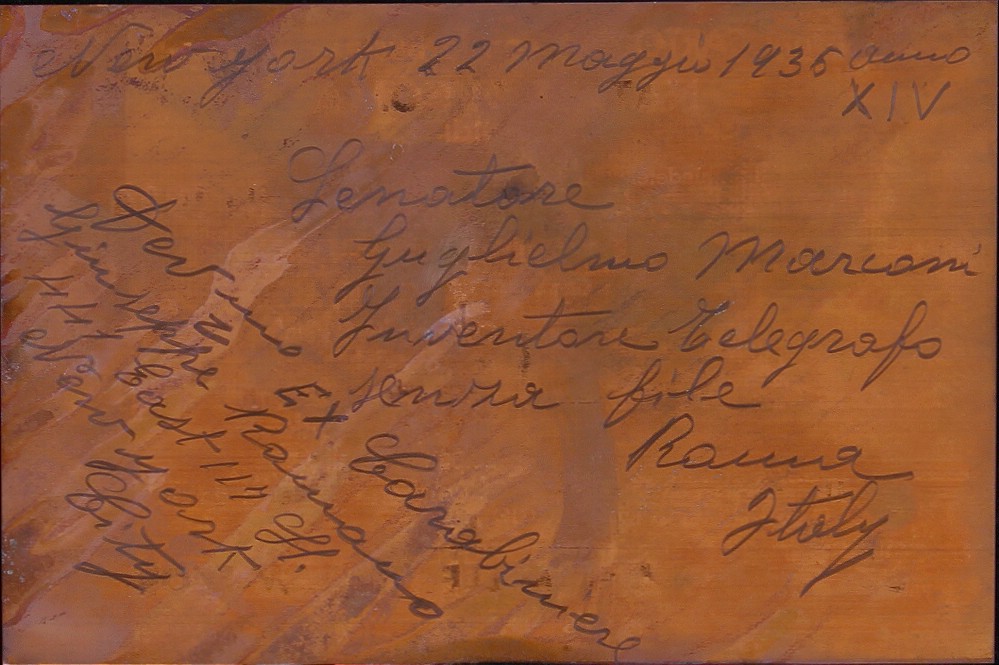 New York 22 Maggio 1936 anno
XIV
Senatore
Guglielmo Marconi
Inventore Telegrafo
senza file
Roma
Italy
Devino Ex Carabiniere
Giuseppe Romano
441 East 114 St.
New York City